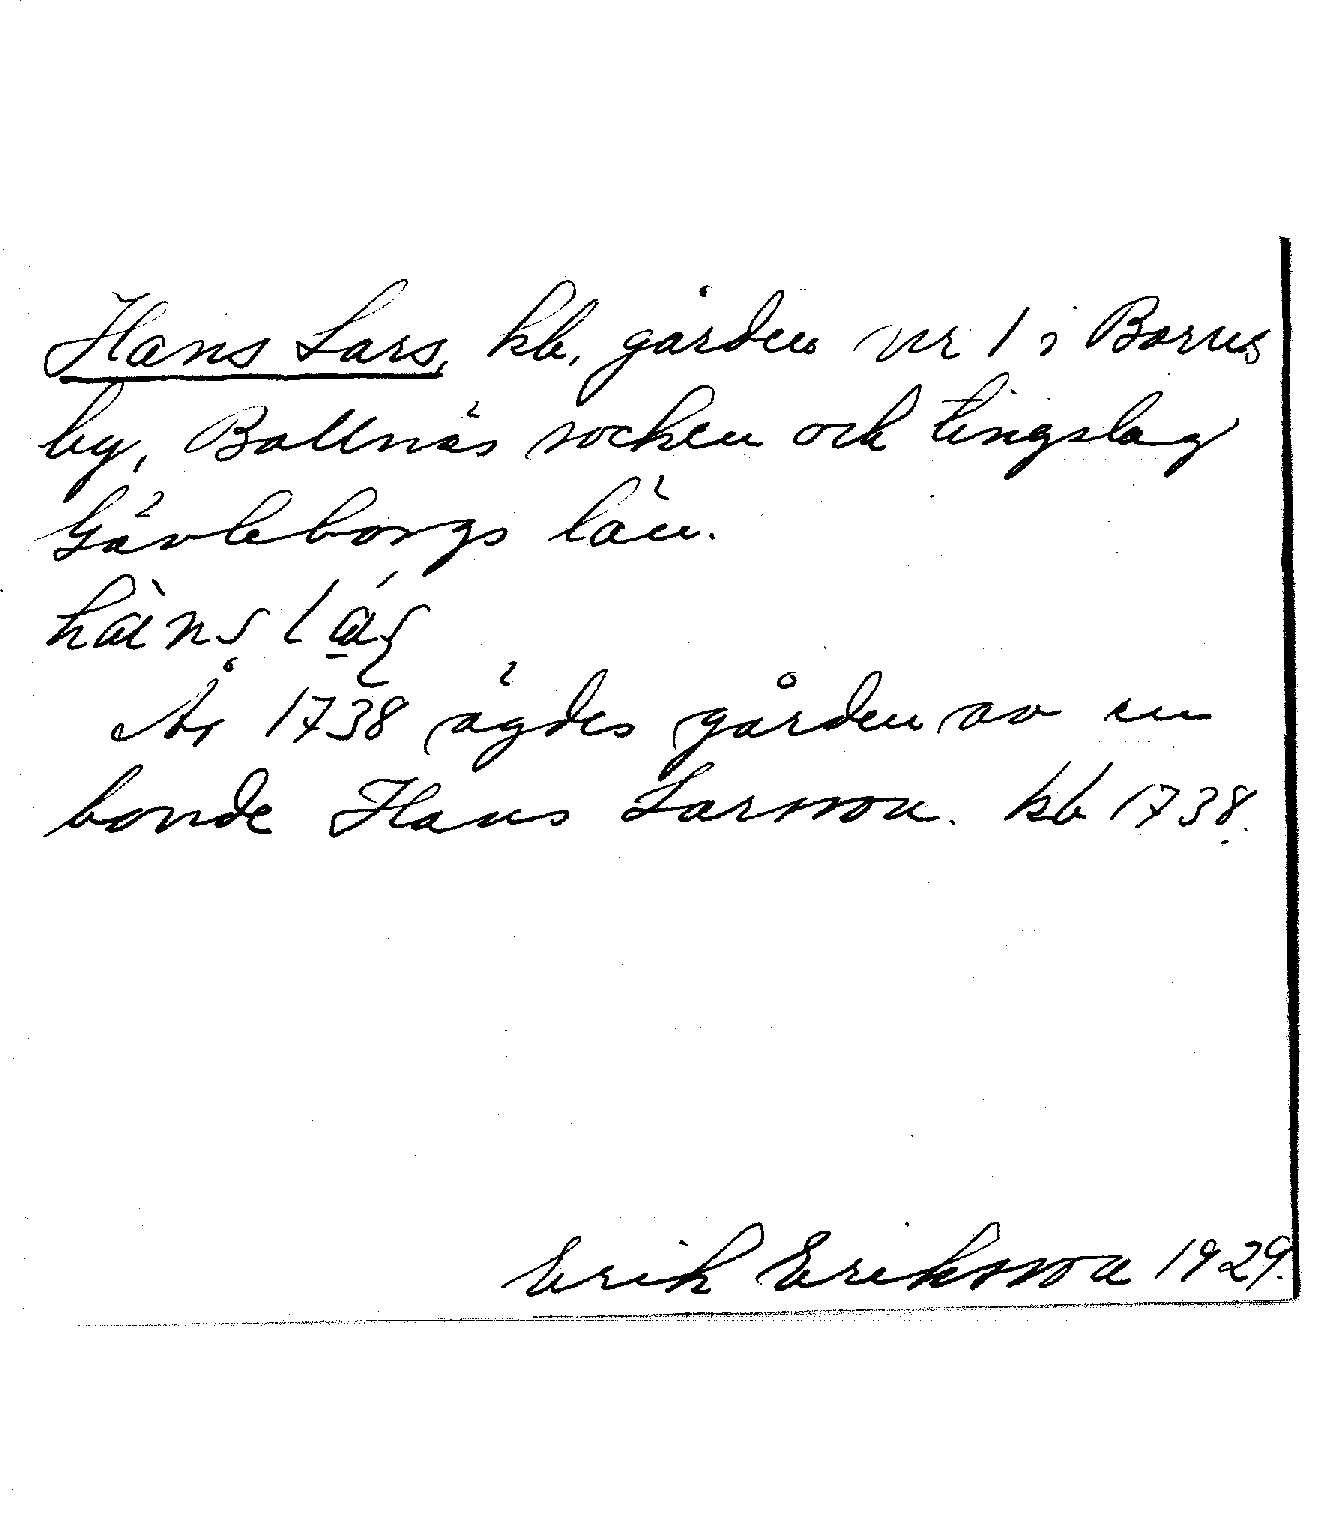 Hans Lars, kb, gården nr 1 i Borns
by, Bollnäs socken och tingslag
Gävleborgs län.
År 1738 ägdes gården av en
bonde Hans Larsson. kb 1738.
Erik Eriksson 1929.